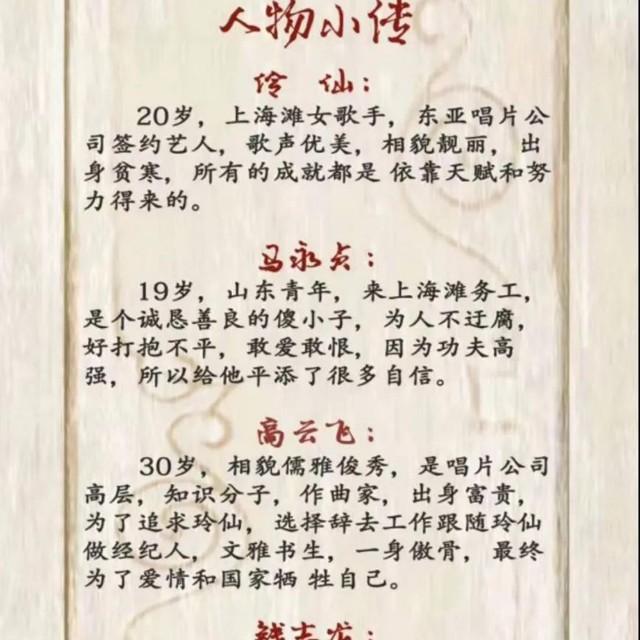 人物小传
伶 仙：
20岁，上海滩女歌手，东亚唱片公
司签约艺人，歌声优美，相貌靓丽，出
身贫寒，所有的成就都是 依靠天赋和努
力得来的。
马永贞：
19岁，山东青年，来上海滩务工，
是个诚恳善良的傻小子，为人不迂腐，
好打抱不平，敢爱敢恨，因为功夫高
强，所以给他平添了很多自信。
高云飞：
30岁，相貌儒雅俊秀，是唱片公司
高层，知识分子，作曲家，出身富贵，
为了追求玲仙，选择辞去工作跟随玲仙
做经纪人，文雅书生，一身傲骨，最终
为了爱情和国家牺 牲自己。